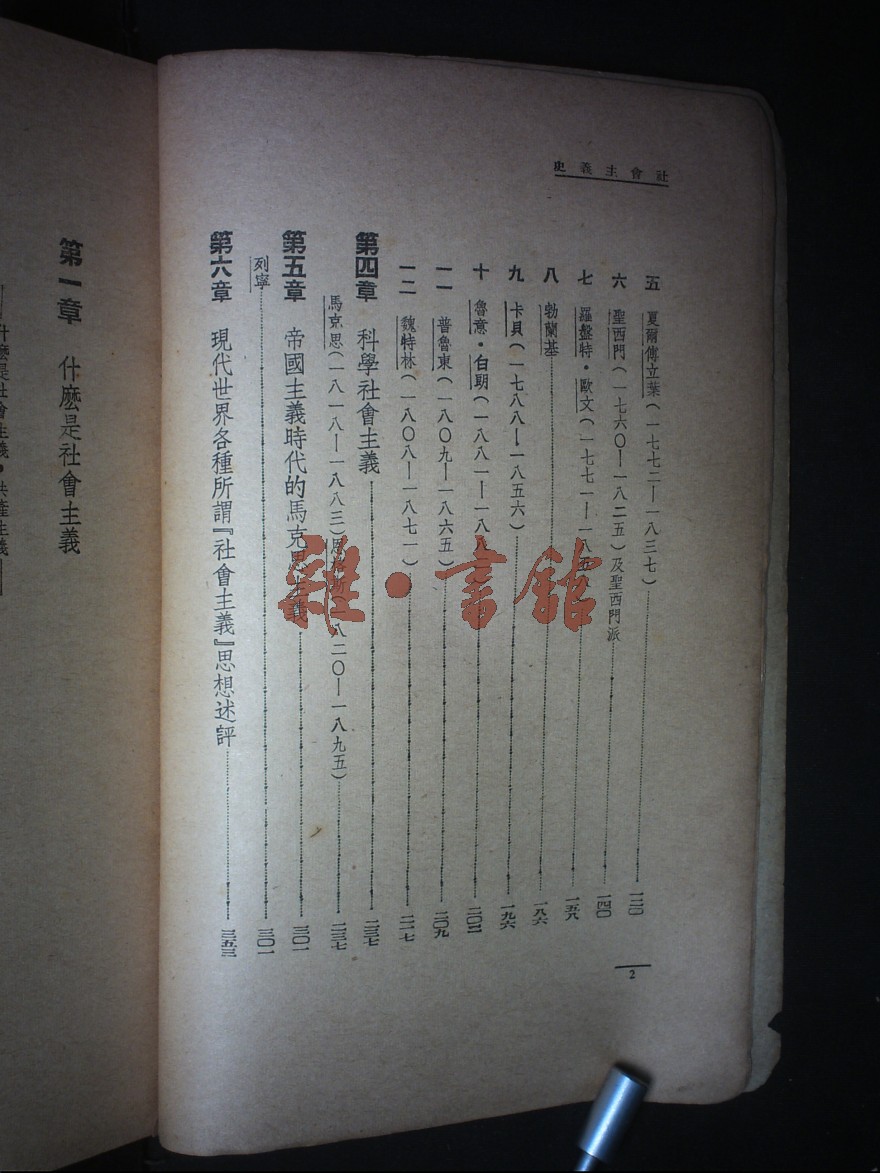 社會主義史
五 夏爾傅立葉(一七七二—一八三七) 一二〇
六 聖西門(一七六〇—一八二五)及聖西門派 一四〇
七 羅盤特・歐文(一七七一—一八五 一五八
八 勃蘭基 一八六
九 卡貝(一七八八—一八五六) 一九六
十 魯意・白朗(一八八一—一八八 二〇二
一一 普魯東(一八〇九—一八六五) 二〇九
一二 魏特林(一八〇八—一八七一) 二一七
第四章 科學社會主義 二三七
馬克思(一八一八—一八八三)恩格斯(一八二〇—一八九五) 二三七
第五章 帝國主義時代的馬克思主義 三〇一
列寧 三〇一
第六章 現代世界各種所謂『社會主義』思想述評 三五三
2
第一章 什麼是社會主義
什麼是社會主義・共產主義
雜・書館